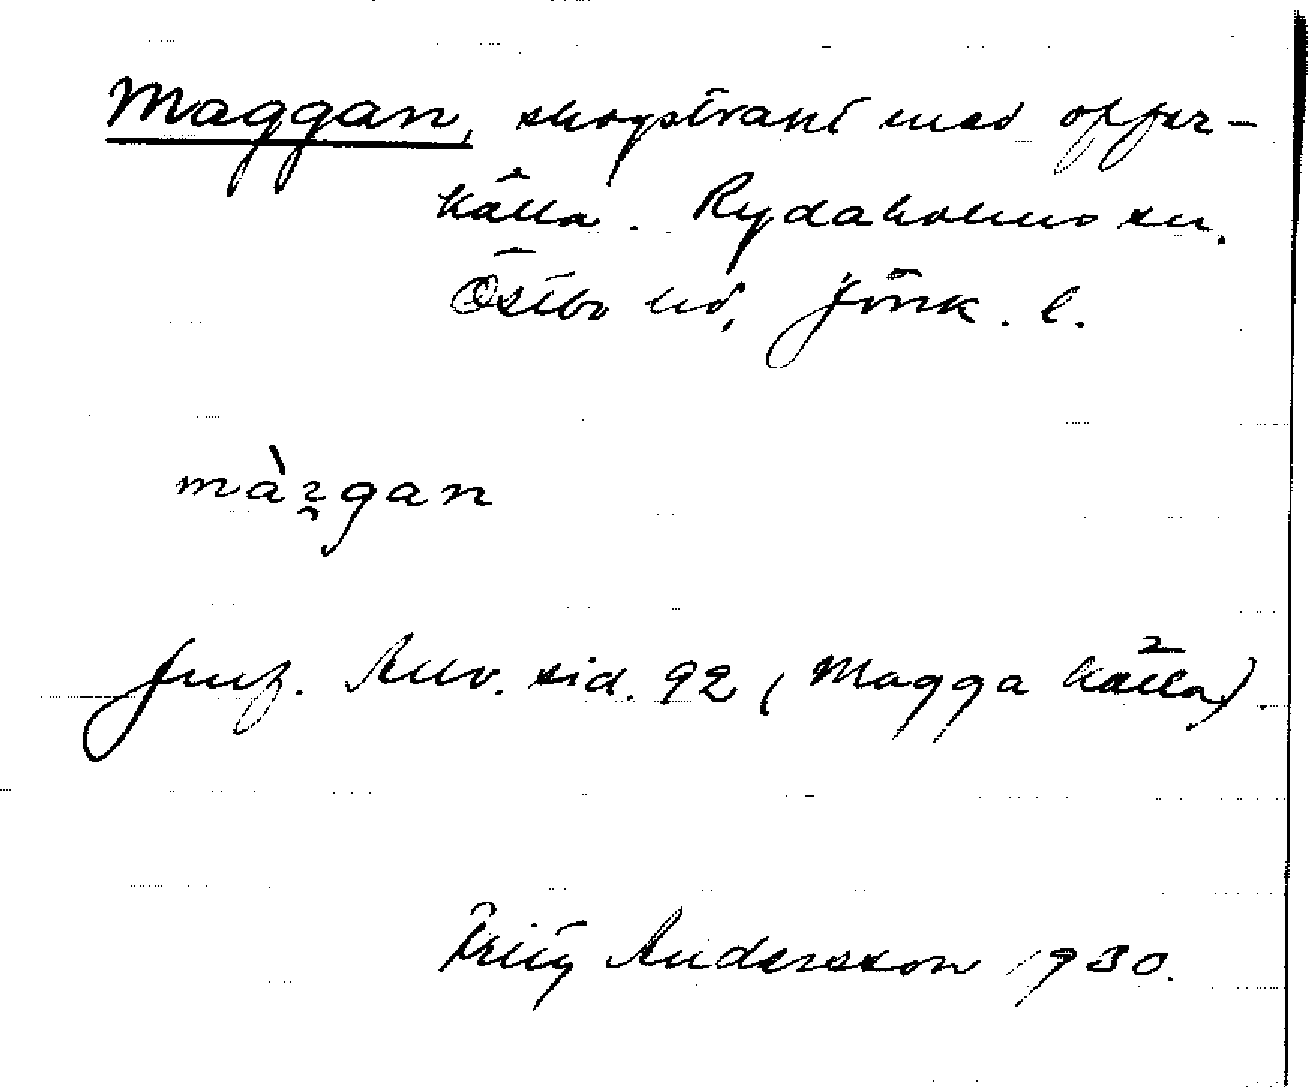 Maggan, skogstrakt med offer-
källa. Rydaholms sn.
Östbo hd, Jönk. l.
màgan
Jmf. Allv. sid. 92 (Magga källa).
Fritz Andersson 1930.